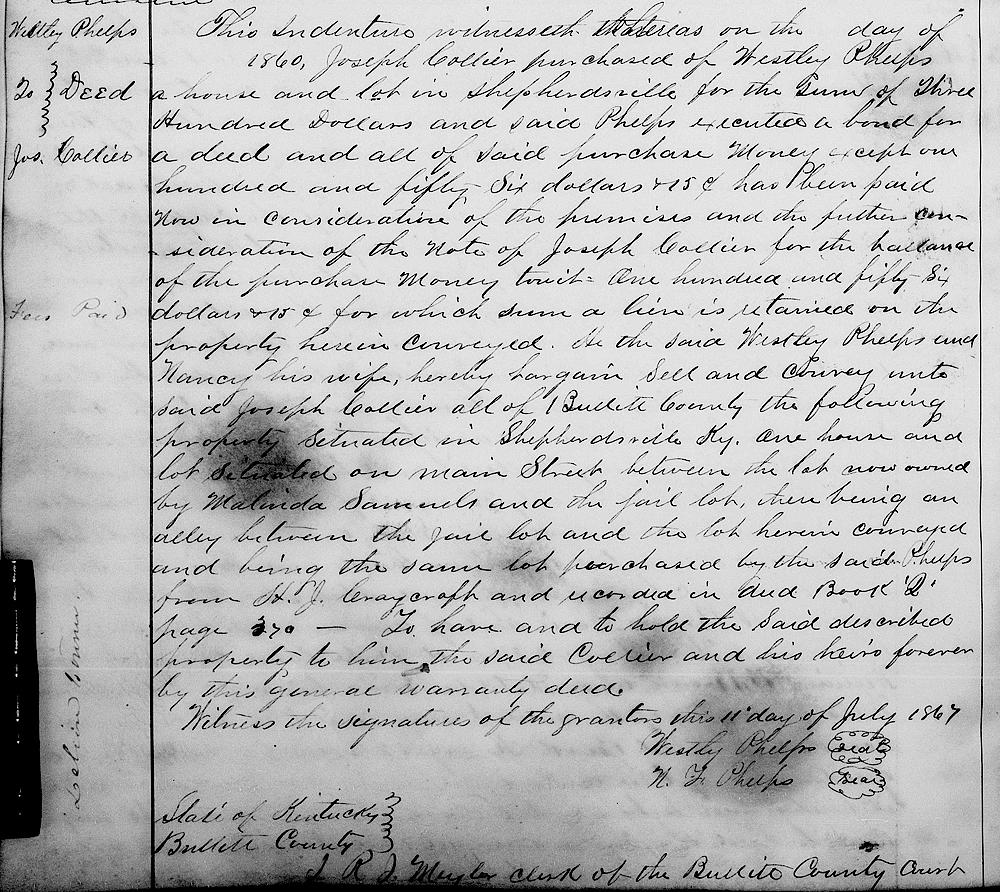 Westley Phelps
To Deed
Jos. Collier
Fees Paid
This Indenture witnesseth Whereas on the day of
1860, Joseph Collier purchased of Westley Phelps
a house and lot in Shepherdsville for the Sum of Three
Hundred Dollars and said Phelps executed a bond for
a deed and all of said purchase Money except one
hundred and fifty Six dollars & 15 ¢ has been paid
Now in Consideration of the premises and the futher con-
-sideration of the Note of Joseph Collier for the ballance
of the purchase Money towit = One hundred and fifty Six
dollars & 15 ¢ for which sum a lien is retained on the
property herein Conveyed. He the said Westley Phelps and
Nancy his wife, hereby bargain Sell and Convey unto
said Joseph Collier all of Bullitt County the following
property Situated in Shepherdsville Ky. One house and
lot situated on main Street between the lot now owned
by Malinda Samuels and the jail lot, there being an
alley between the jail lot and the lot herein conveyed
and being the same lot purchased by the said Phelps
from H. J. Craycroft and recorded in deed Book
page 370 — To have and to hold the said described
property to him, the said Collier and his heirs forever
by this general warranty deed.
Witness the signatures of the grantors this 11" day of July 1867
Westly Phelps Seal
N. F. Phelps Seal
State of Kentucky
Bullitt County
I R. J. Meyler clerk of the Bullitt County Court